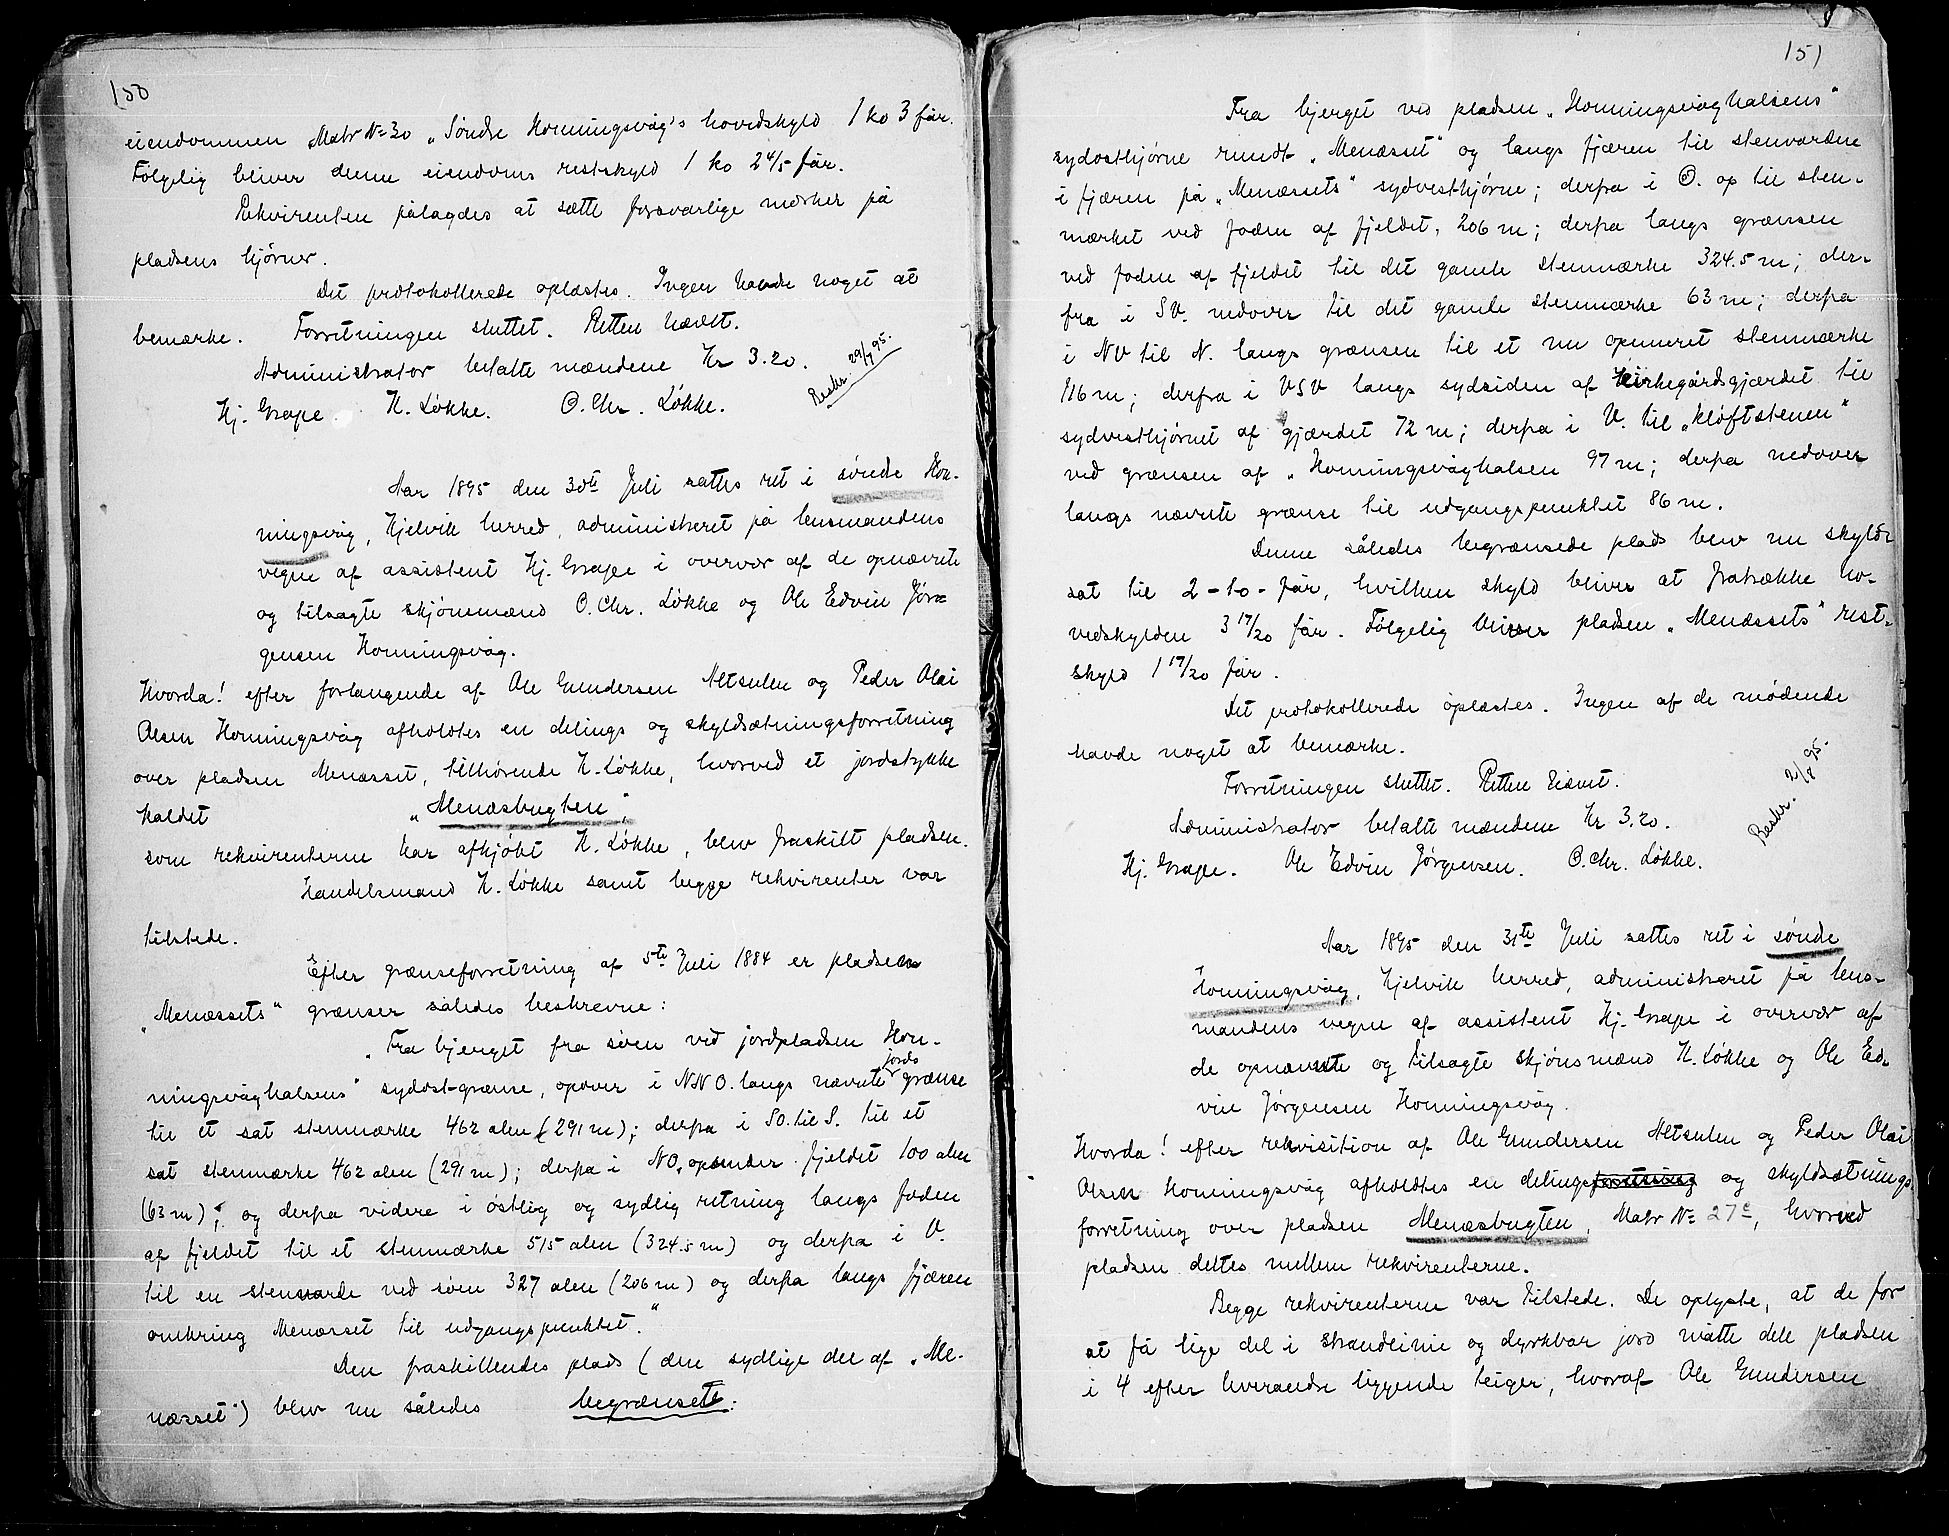 150
eiendommen Matr № 30 „Søndre Honningsvåg's hovedskyld 1 ko 3 får.
Følgelig bliver denne eiendoms restskyld 1 ko 2 4/5 får.
Rekvirenten pålagdes at sætte forsvarlige mærker på
pladsens hjørner.
Det protokollerede oplæstes. Ingen havde noget at
bemærke. Forretningen sluttet. Retten hævet.
Administrator betalte mændene Kr 3.20.
Beskr. 29/7 95.
Hj. Grape. K. Løkke. O. Chr. Løkke.
Aar 1895 den 30te Juli sattes ret i søndre Hon-
ningsvåg, Kjelvik herred, administreret på lensmandens
vegne af assistent Hj. Grape i overvær af de opnævnte
og tilsagte skjønsmænd O. Chr. Løkke og Ole Edvin Jør-
gensen Honningsvåg.
Hvorda! efter forlangende af Ole Gundersen Altsulen og Peder Olai
Olsen Honningsvåg afholdtes en delings og skyldsætningsforretning
over pladsen Menæsset, tilhørende K. Løkke, hvorved et jordstykke
kaldet „Menæsbugten“,
som rekvirenterne har afkjøbt K. Løkke, blev fraskilt pladsen.
Handelsmand K. Løkke samt begge rekvirenter var
tilstede.
Efter grænseforretning af 5te Juli 1884 er pladsen
„Menæssets“ grænser således beskrevne:
„Fra bjerget fra søen ved jordpladsen Hon-
ningsvåghalsens“ sydost-grænse, opover i NNO. langs nævnte jords grænse
til et sat stenmærke 462 alen (291 m); derpå i SO. til S. til et
sat stenmærke 462 alen (291 m); derpå i NO. opunder fjeldet 100 alen
(63 m); og derpå videre i østlig og sydlig retning langs foden
af fjeldet til et stenmærke 515 alen (324.5 m) og derpå i V.
til en stenvarde ved søen 327 alen (206 m) og derpå langs fjæren
omkring Menæsset til udgangspunktet.“
Den fraskillendes plads (den sydlige del af „Me-
næsset“) blev nu således begrænset:
151
Fra bjerget ved pladsen „Honningsvåghalsens“
sydosthjørne rundt „Menæsset“ og langs fjæren til stenvarden
i fjæren på „Menæssets“ sydvesthjørne; derpå i O. op til sten-
mærket ved foden af fjeldet, 206 m; derpå langs grænsen
ved foden af fjeldet til det gamle stenmærke 324.5 m; der-
fra i SV. nedover til det gamle stenmærke 63 m; derpå
i NV til N. langs grænsen til et nu opmuret stenmærke
116 m; derpå i VSV langs sydsiden af kirkegårdsgjærdet til
sydvesthjørnet af gjærdet 72 m; derpå i V. til „kløftstenen“
ved grænsen af „Honningsvåghalsen 97 m; derpå nedover
langs nævnte grænse til udgangspunktet 86 m.
Denne således begrænsede plads blev nu skyld-
sat til 2 - to - får, hvilken skyld bliver at fratrække ho-
vedskylden 3 17/20 får. Følgelig bliver pladsen „Menæssets“ rest-
skyld 1 17/20 får.
Det protokollerede oplæstes. Ingen af de mødende
havde noget at bemærke.
Forretningen sluttet. Retten hævet.
Administrator betalte mændene Kr 3.20.
Beskr. 2/8 95.
Hj. Grape. Ole Edvin Jørgensen. O. Chr. Løkke.
Aar 1895 den 31te Juli sattes ret i søndre
Honningsvåg, Kjelvik herred, administreret på lens-
mandens vegne af assistent Hj. Grape i overvær af
de opnævnte og tilsagte skjønsmænd K. Løkke og Ole Ed-
vin Jørgensen Honningsvåg.
Hvorda! efter rekvisition af Ole Gundersen Altsulen og Peder Olai
Olsen Honningsvåg afholdtes en delingsforretning og skyldsætnings-
forretning over pladsen Menæsbugten, Matr № 27c, hvorved
pladsen deltes mellem rekvirenterne.
Begge rekvirenterne var tilstede. De oplyste, at de for
at få lige del i strandlinie og dyrkbar jord måtte dele pladsen
i 4 efter hverandre liggende teiger, hvoraf Ole Gundersen